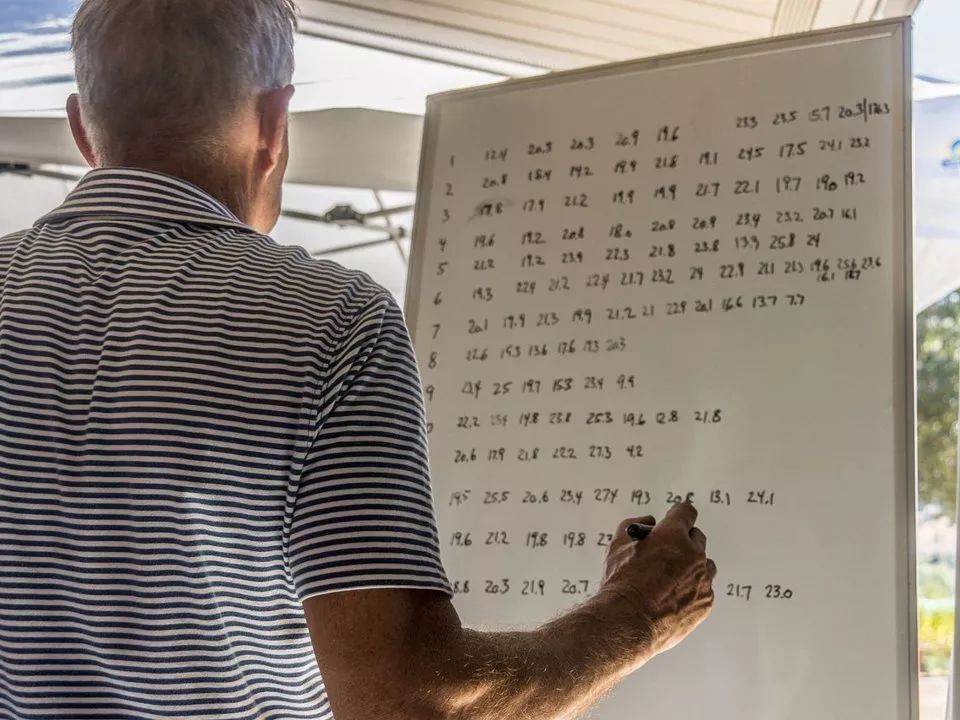 1 12.4 20.3 20.3 20.9 19.6 23.3 23.5 15.7 20.3/17.3
2 20.8 18.4 19.2 19.9 21.8 19.1 24.5 17.5 24.1 23.2
3 17.8 17.9 21.2 19.9 19.9 21.7 22.1 19.7 19.0 19.2
4 19.6 19.2 20.8 18.0 20.8 20.9 23.4 23.2 20.7 16.1
5 21.2 19.2 23.9 22.3 21.8 23.8 13.9 25.8 24
6 19.3 22.4 21.2 22.4 21.7 23.2 24 22.9 21.1 21.3 19.6 25.6 23.6
16.1 18.7
7 20.1 19.9 21.3 19.9 21.2 21 22.9 20.1 16.6 13.7 7.7
8 22.6 19.3 13.6 17.6 19.3 20.3
9 23.4 25 19.7 15.3 23.4 9.9
22.2 23.4 19.8 23.8 25.3 19.6 12.8 21.8
20.6 17.9 21.8 22.2 27.3 4.2
19.5 25.5 20.6 23.4 27.4 19.3 13.1 24.1
19.6 21.2 19.8 19.8
20.3 21.9 20.7 21.7 23.0